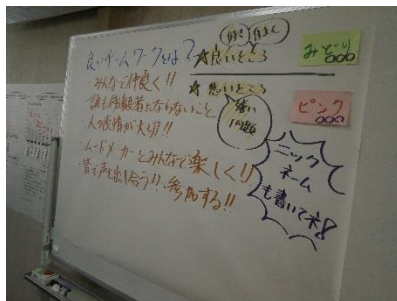 良いチームワークとは?
・みんなで仲良く!!
誰も傍観者にならないこと
人の表情が大切!!
・ムードメーカーとみんなで楽しく!!
皆で声を出し合う!!・参加する!!
☆良いところ
☆悪いところ
問題
みどり
ピンク
ニック
ネーム
も書いてネ